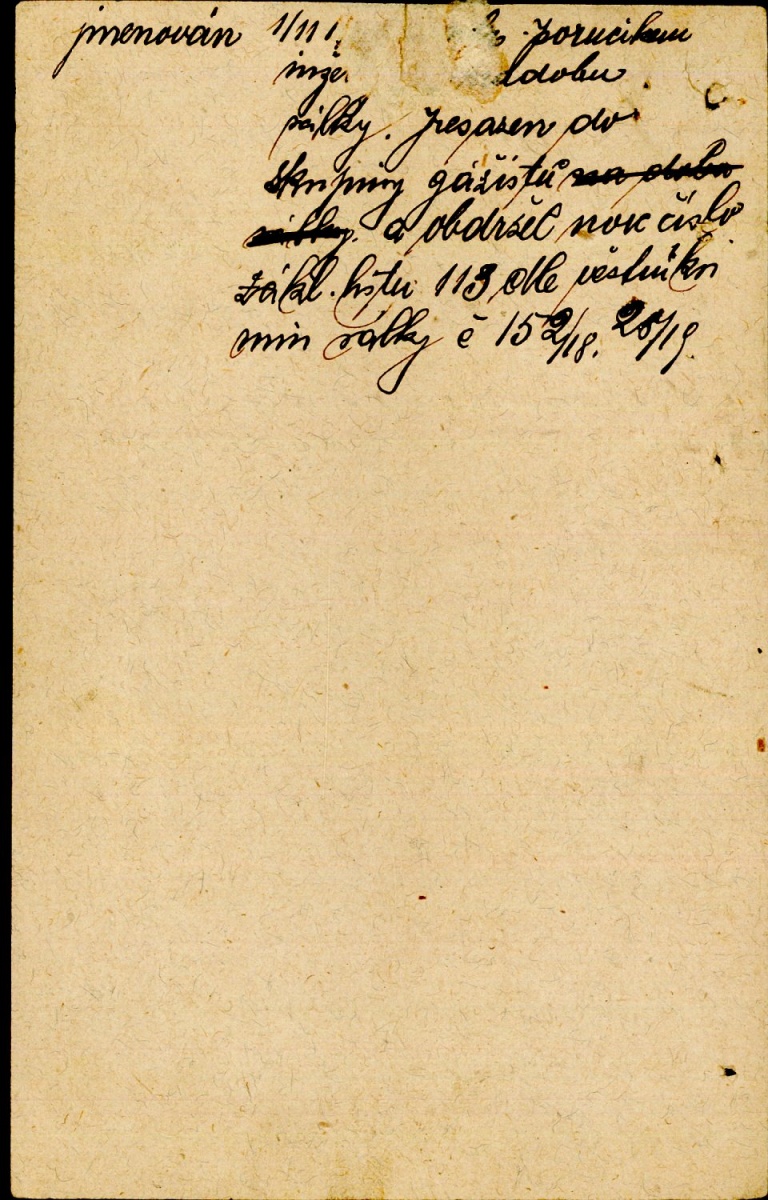 jmenován 1/11 1 poručíkem
inže dobu
války. přesazen do
skupiny gážistů na dobu
války. a obdržel nov číslo
zákl. listu 113 dle věstníku
min války č 152/18. 28/19.